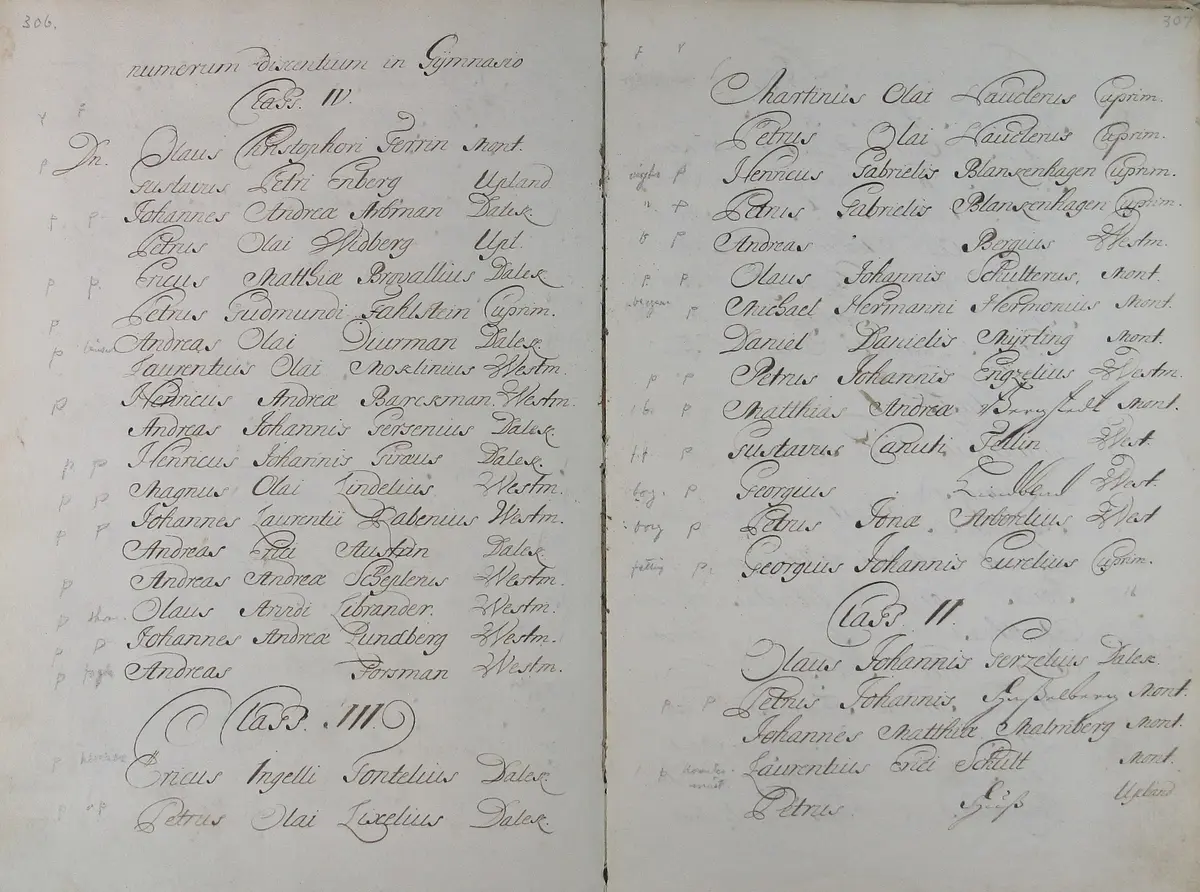 306.
numerum discentium in Gÿmnasio
Class. IV.
Dn. Olaus Christophori Ferrin Mont.
Gustavus Petri Enberg Upland
Johannes Andreæ Arbman Dalek.
Petrus Olai Widberg Upl.
Ericus Matthiæ Browallius Dalek.
Petrus Gudmundi Fahlstein Cuprim.
Andreas Olai Duurman Dalek.
Laurentius Olai Moklinius Westm.
Hendricus Andreæ Barckman Westm.
Andreas Johannis Gersenius Dalek.
Henricus Johannis Dalek.
Magnus Olai Lindelius Westm.
Johannes Laurentii Rabenius Westm.
Andreas Erici Austrin Dalek.
Andreas Andreæ Westm.
Olaus Arvidi Librander. Westm.
Johannes Andreæ Lundberg Westm.
Andreas Forsman Westm.
Class. III.
Ericus Ingelli Fontelius Dalek.
Petrus Olai Lixelius Dalek.
307
Martinus Olai Nauclerus Cuprim.
Petrus Olai Nauclerus Cuprim.
Henricus Gabrielis Blankenhagen Cuprim.
Petrus Gabrielis Blankenhagen Cuprim.
Andreas Bergius Westm.
Olaus Johannis Schulterus. Mont.
Michael Hermanni Hermonius Mont.
Daniel Danielis Myrting Mont.
Petrus Johannis Engzelius Westm.
Matthias Andreæ Bergstedt Mont.
Gustavus Canuti Fellin West.
Georgius West.
Petrus Jonæ Arborelius West
Georgius Johannis Eurelius Cuprim.
Class. II.
Olaus Johannis Gerzelius Dalek.
Petrus Johannis Hasselberg Mont.
Johannes Matthiæ Malmberg Mont.
Laurentius Erici Schult Mont.
Petrus Upland